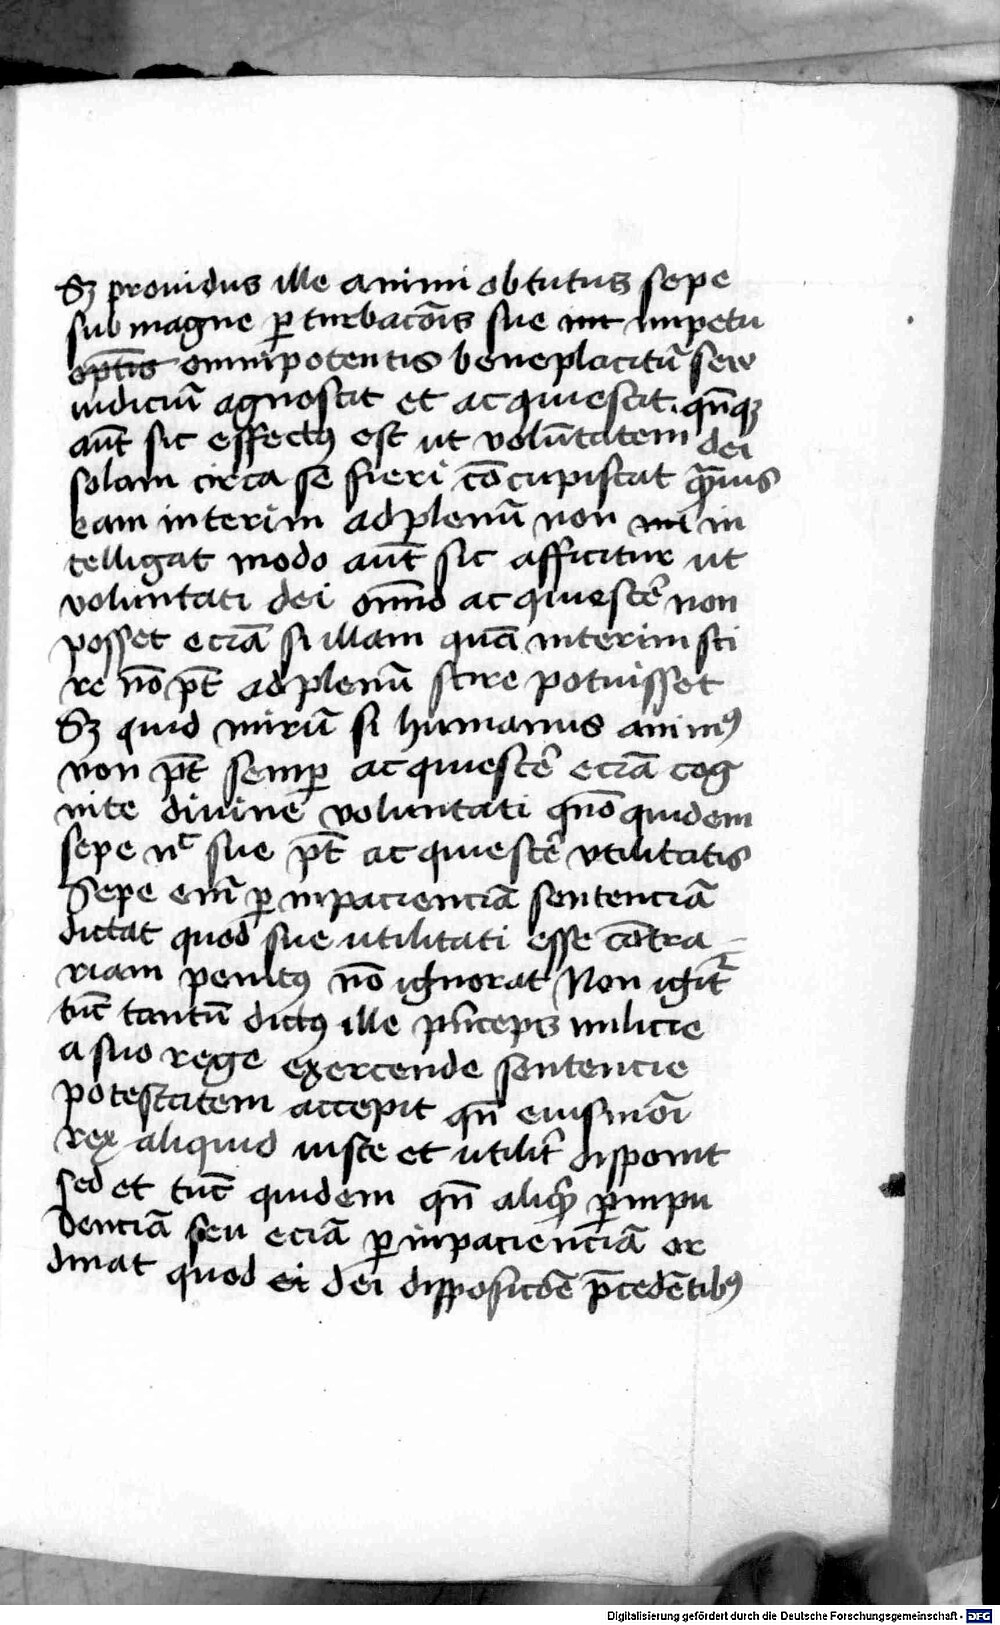 Sꝫ prouidus ille animi obtutus sepe
sub magne ꝑturbac̄ōis sue int impetu
optīs omnipotentis beneplacitū seu
iudiciū agnoscit et acquiescit. qn̄qꝫ
aūt sic effectꝰ est ut volūtatem dei
solam circa se fieri cōcupiscat q̄muis
eam interim ad plenū non ini in
telligat modo aūt sic afficitur ut
voluntati dei om̄no acquiesce᷑ non
posset eciā si illam quā interim sci
re nō pt̄ ad plenū scire potuisset
Sꝫ quid mirū si humanus animꝰ
von pt̄ semꝑ acquiesce᷑ eciā cog
nite diuine voluntati qn̄o quidem
sepe nᶜ sue pt̄ acquiesce᷑ vtilitatis
Sepe enī ꝑ inpacienciā sentenciā
dictat quod sue utilitati esse cōntra
riam penitꝰ nō ignorat Non igit᷑
tūc tantū dictꝰ ille pͥnceps milicie
a suo rege exercende sentencie
potestatem accepit qn̄ eiusmōi
rex aliquid iuste et utilit᷑ disponit
sed et tūc quidem qn̄ aliqͥd ꝑ inpu
denciā seu eciā ꝑ inpacienciā or
dinat quod ei dei disposicōe p̄cedētibꝰ
Digitalisierung gefördert durch die Deutsche Forschungsgemeinschaft - DFG